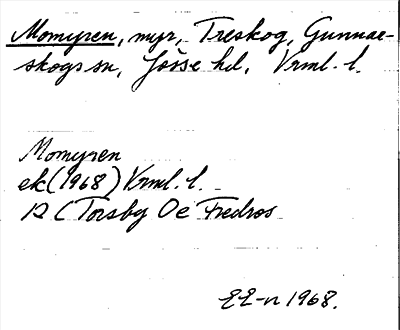 Momyren, myr, Treskog, Gunnar-
skogs sn, Jösse hd, Vrml. l.
Momyren
ek (1968) Vrml. l.
12 C Torsby Oe Fredros
EE-n 1968.